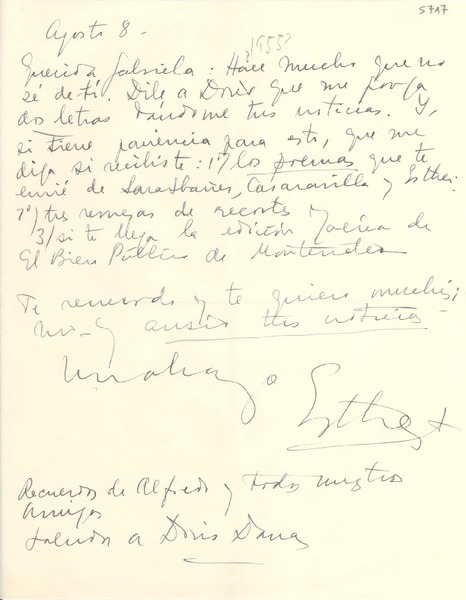 5717
Agosto 8 -
¿1955?
Querida Gabriela: Hace mucho que no
sé de ti. Dile a Doris que me ponga
dos letras dándome tus noticias. Y,
si tiene paciencia para esto, que me
diga si recibiste: 1º) los poemas que te
envié de Sara Ibáñez, Casaravilla y Esther.
2º) tres remesas de recortes
3/ si te llega la edición aérea de
El Bien Público de Montevideo
Te recuerdo y te quiero muchísi
mo - Y ansío tus noticias -
Un abrazo
Esther
Recuerdos de Alfredo y todos nuestros
amigos
Saludos a Doris Dana